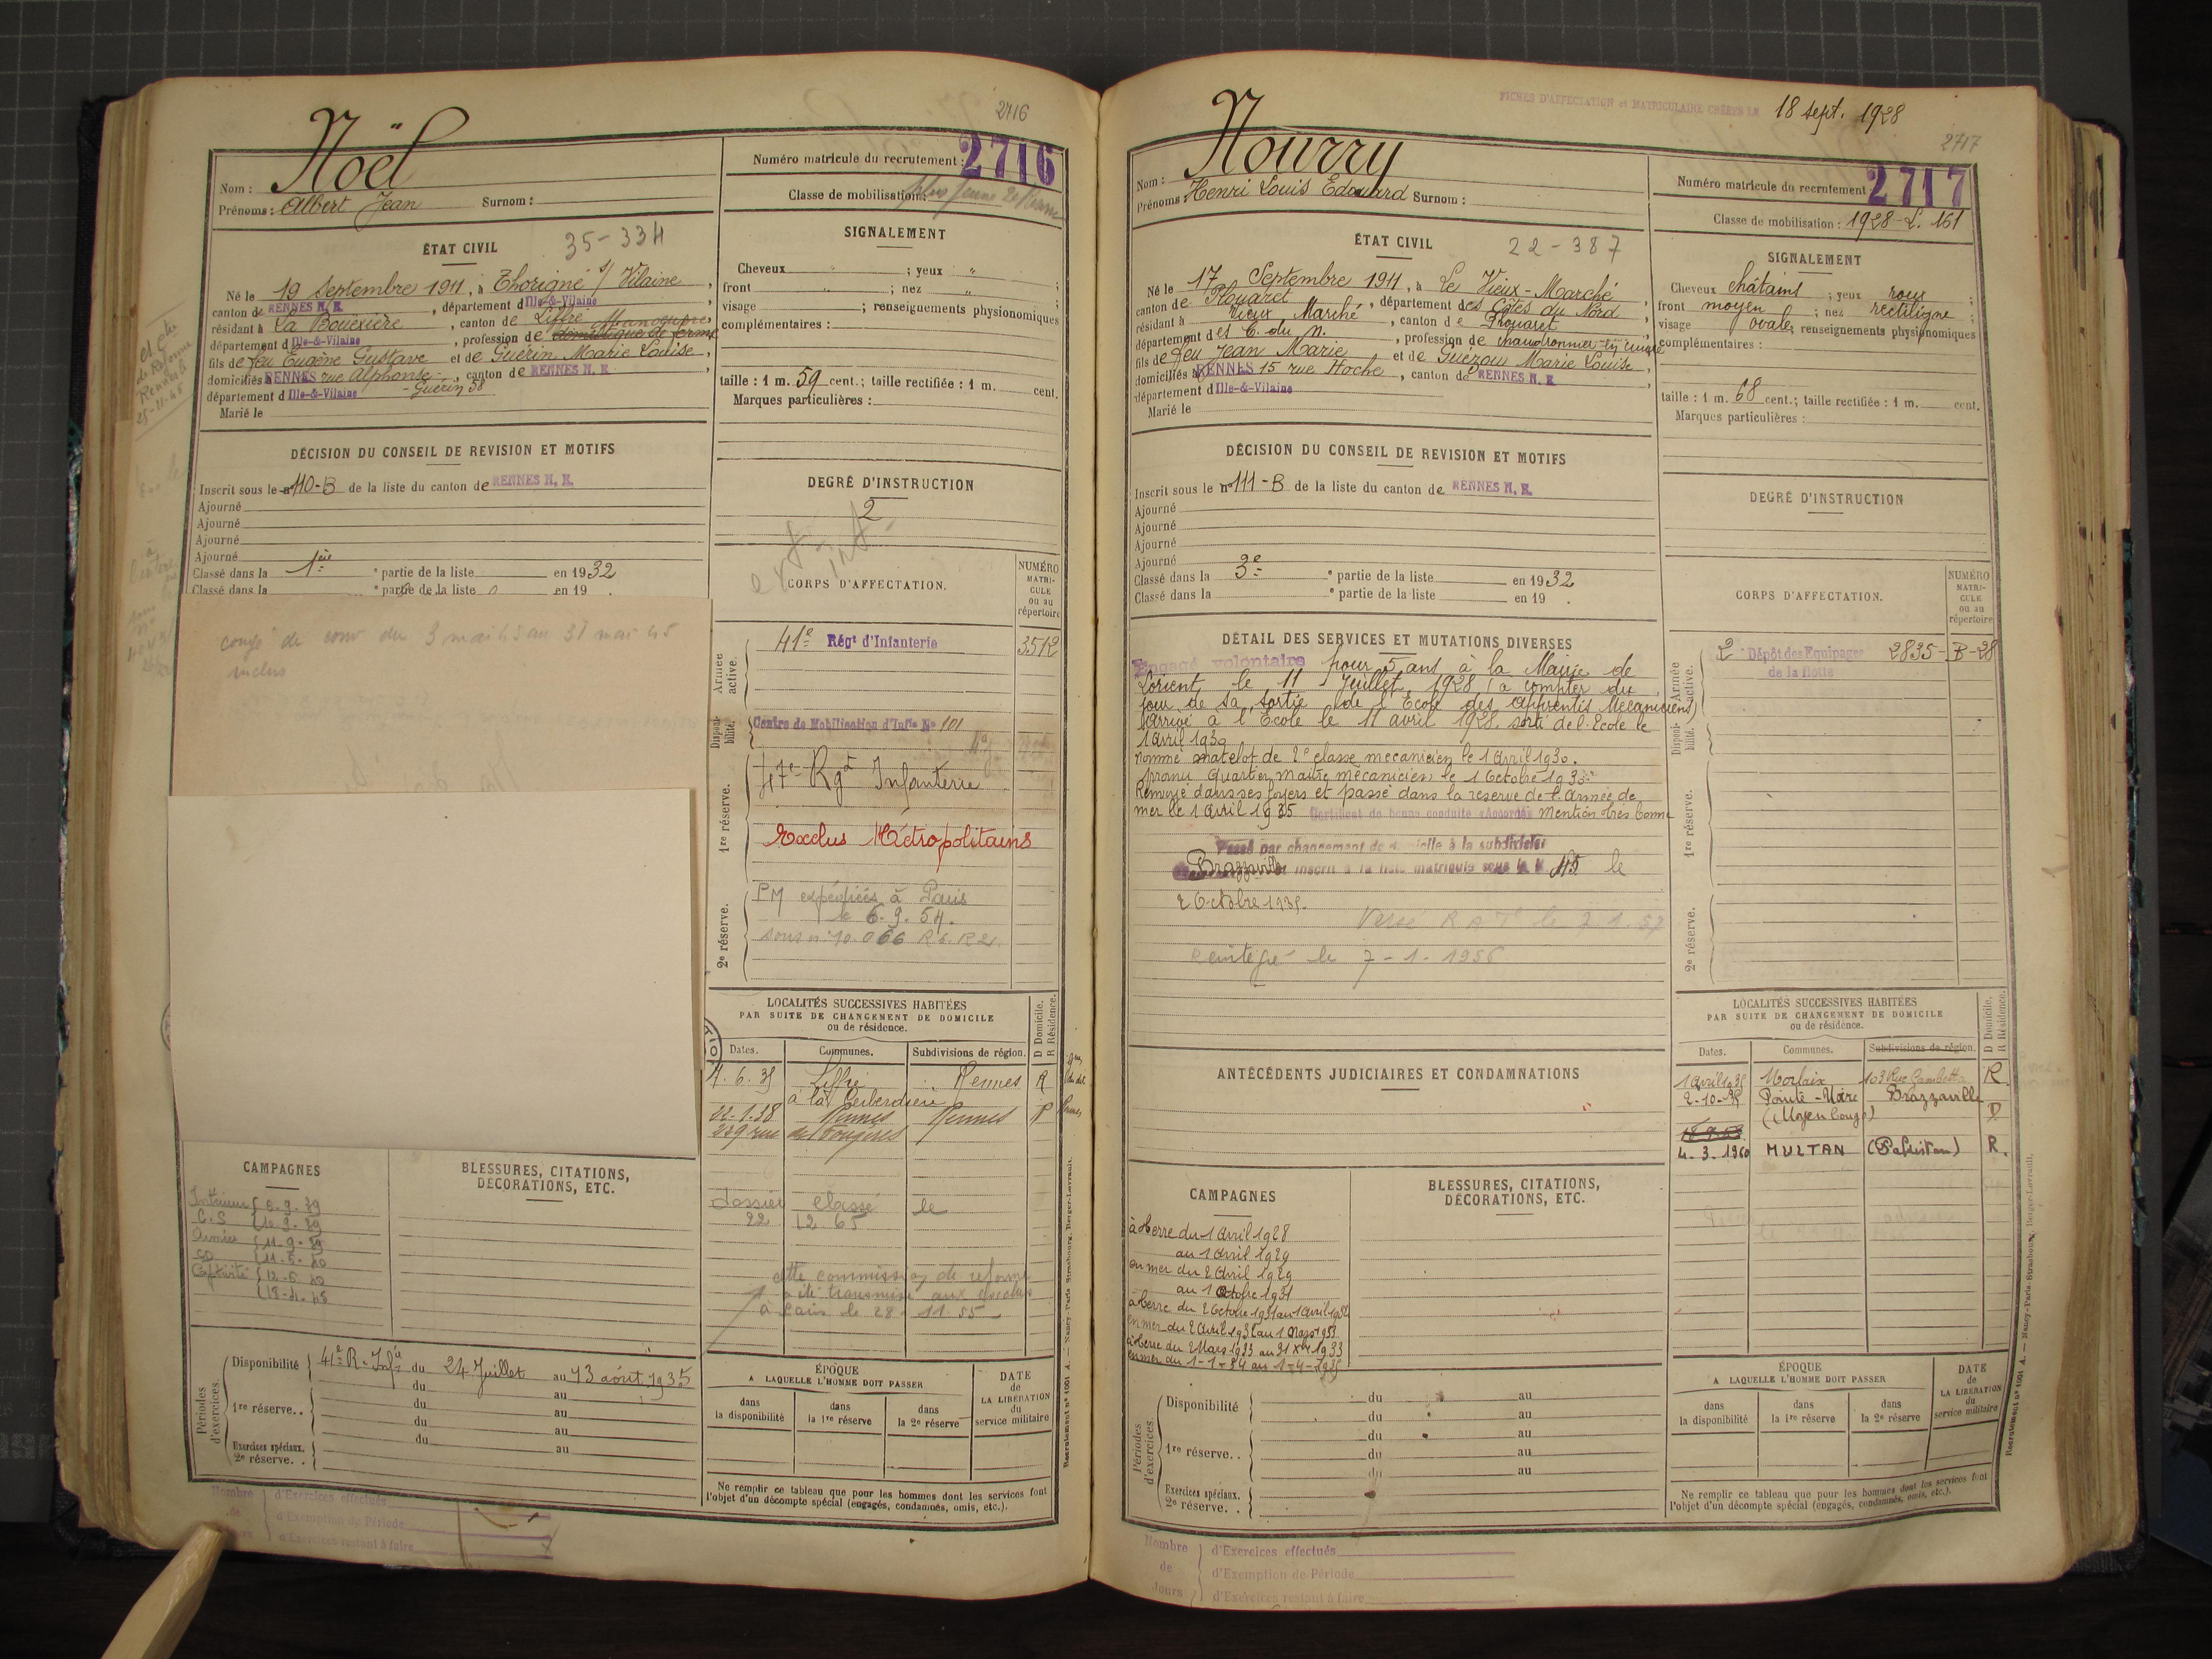 2716
Nom : Noël
Numéro matricule du recrutement : 2716
Prénoms : Albert Jean Surnom :
Classe de mobilisation : plus jeune 2e
ÉTAT CIVIL
35-334
Né le 19 Septembre 1911, à Thorigné s/ Vilaine,
canton de RENNES N. E., département d'Ille-&-Vilaine,
résidant à La Bouëxière, canton de Liffré Manoeuvre
département d Ille-&-Vilaine, profession de domestique de ferme
fils de feu Eugène Gustave et de Guérin Marie Louise,
domiciliés RENNES rue Alphonse, canton de RENNES N. E.
département d Ille-&-Vilaine - Guérin 58
Marié le
SIGNALEMENT
Cheveux " ; yeux "
front " ; nez " ;
visage ; renseignements physionomiques
complémentaires :
taille : 1 m. 59 cent.; taille rectifiée : 1 m. cent.
Marques particulières :
DÉCISION DU CONSEIL DE REVISION ET MOTIFS
Inscrit sous le n° 110-B de la liste du canton de RENNES N. E.
Ajourné
Ajourné
Ajourné
Ajourné
Classé dans la 1ère partie de la liste en 1932
Classé dans la partie de la liste en 19 .
congé de conv du 3 mai 45 au 31 mai 45
inclus
DEGRÉ D'INSTRUCTION
2
CORPS D'AFFECTATION.
NUMÉRO MATRI-CULE ou au répertoire
Armée active.
41e Régt d'Infanterie 3512
Disponibilité.
Centre de Mobilisation d'Infie No 101
1re réserve.
47e Rgt Infanterie
Exclus Métropolitains
2e réserve.
PM expédiées à Paris
le 6.9.54.
sous n° 10.066
LOCALITÉS SUCCESSIVES HABITÉES
PAR SUITE DE CHANGEMENT DE DOMICILE
ou de résidence.
D Domicile. R Résidence.
Dates. Communes. Subdivisions de région.
4.6.35 Liffré Rennes R
à la
22-1.38 Rennes Rennes R
229 rue de Fougères
dossier classé le
22 12 65
cette commission de réforme
a été transmise aux exclus
à Paris le 28 11.55
CAMPAGNES
Intérieur 6.9.39
C.S
Armées 11.9.39
11.5.40
Captivité 12-5.40
18-4.45
BLESSURES, CITATIONS,
DÉCORATIONS, ETC.
Périodes d'exercices
Disponibilité 41e R. Infie du 24 Juillet au 13 août 1935
du au
1re réserve.. du au
du au
Exercices spéciaux. 2e réserve. . du au
ÉPOQUE
A LAQUELLE L'HOMME DOIT PASSER
dans la disponibilité
dans la 1re réserve
dans la 2e réserve
DATE de LA LIBÉRATION du service militaire
Ne remplir ce tableau que pour les hommes dont les services font
l'objet d'un décompte spécial (engagés, condamnés, omis, etc.).
Nombre de Jours
d'Exercices effectués
d'Exemption de Période
d'Exercices restant à faire
FICHES D'AFFECTATION et MATRICULAIRE CRÉÉES LE 18 sept. 1928
2717
Nom : Nourry
Numéro matricule du recrutement : 2717
Prénoms : Henri Louis Edouard Surnom :
Classe de mobilisation : 1928-L. 161
ÉTAT CIVIL
22-387
Né le 17 Septembre 1911, à Le Vieux-Marché
canton de Plouaret, département des Côtes du Nord,
résidant à Vieux Marché, canton de Plouaret
département des C. du N., profession de chaudronnier en cuivre
fils de feu Jean Marie et de Guezou Marie Louise,
domiciliés à RENNES 15 rue Hoche, canton de RENNES N. E.
département d Ille-&-Vilaine
Marié le
SIGNALEMENT
Cheveux châtains ; yeux roux ;
front moyen ; nez rectiligne ;
visage ovale ; renseignements physionomiques
complémentaires :
taille : 1 m. 68 cent.; taille rectifiée : 1 m. cent.
Marques particulières :
DÉCISION DU CONSEIL DE REVISION ET MOTIFS
Inscrit sous le n° 111-B de la liste du canton de RENNES N. E.
Ajourné
Ajourné
Ajourné
Ajourné
Classé dans la 3e partie de la liste en 1932
Classé dans la partie de la liste en 19 .
DEGRÉ D'INSTRUCTION
CORPS D'AFFECTATION.
NUMÉRO MATRI-CULE ou au répertoire
DÉTAIL DES SERVICES ET MUTATIONS DIVERSES
Engagé volontaire pour 5 ans à la Mairie de
Lorient, le 11 Juillet 1928 (à compter du
jour de sa sortie de l'Ecole des apprentis Mécaniciens)
arrivé à l'Ecole le 11 avril 1928, sorti de l'Ecole le
1 avril 1930
nommé matelot de 2e classe mécanicien le 1 avril 1930.
promu quartier maître mécanicien le 1 Octobre 1930
Renvoyé dans ses foyers et passé dans la réserve de l'armée de
mer le 1 avril 1935 Certificat de bonne conduite «Accordé» Mention très bonne
Passé par changement de domicile à la subdivision
Brazzaville inscrit à la liste matricule sous le N 45 le
2 Octobre 1935.
Versé R A T le 2.1.57
Réintégré le 7-1-1956
Armée active.
2 Dépôt des Equipages 2835-B-28
de la flotte
Disponibilité.
1re réserve.
2e réserve.
ANTÉCÉDENTS JUDICIAIRES ET CONDAMNATIONS
LOCALITÉS SUCCESSIVES HABITÉES
PAR SUITE DE CHANGEMENT DE DOMICILE
ou de résidence.
D Domicile. R Résidence.
Dates. Communes. Subdivisions de région.
1 avril 1935 Morlaix 103 Rue Gambetta R
2-10-35 Pointe-Noire Brazzaville
(Moyen Congo) D
4.3.1960 MULTAN (Pakistan) R.
CAMPAGNES
à terre du 1 avril 1928
au 1 avril 1929
en mer du 2 avril 1929
au 1 Octobre 1931
à terre du 2 Octobre 1931 au 1 avril 1932
en mer du 2 avril 1932 au 1 Mars 1933
à terre du 2 Mars 1933 au 31 Xbre 1933
en mer du 1-1-34 au 1-4-1935
BLESSURES, CITATIONS,
DÉCORATIONS, ETC.
Périodes d'exercices
Disponibilité du au
du au
1re réserve. . du au
du au
Exercices spéciaux. 2e réserve. . du au
ÉPOQUE
A LAQUELLE L'HOMME DOIT PASSER
dans la disponibilité
dans la 1re réserve
dans la 2e réserve
DATE de LA LIBÉRATION du service militaire
Ne remplir ce tableau que pour les hommes dont les services font
l'objet d'un décompte spécial (engagés, condamnés, omis, etc.).
Recrutement n° 1001 A. — Nancy-Paris-Strasbourg, Berger-Levrault.
Nombre de Jours
d'Exercices effectués
d'Exemption de Période
d'Exercices restant à faire